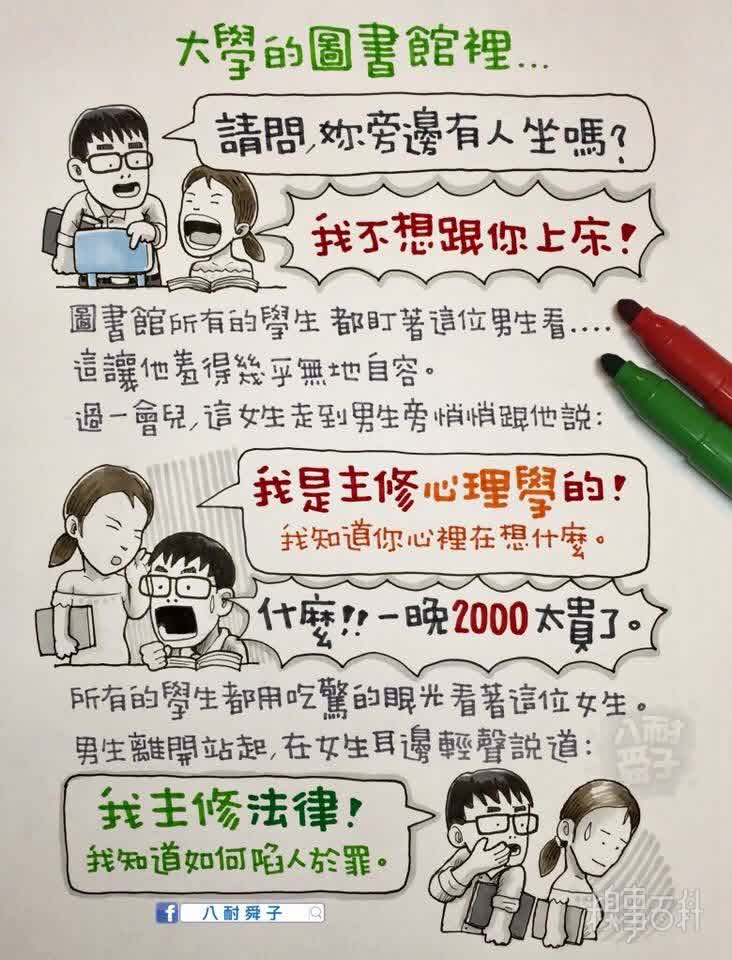 大學的圖書館裡...
請問,妳旁邊有人坐嗎?
我不想跟你上床!
圖書館所有的學生 都盯著這位男生看....
這讓他羞得幾乎無地自容。
過一會兒,這女生走到男生旁悄悄跟他説:
我是主修心理學的!
我知道你心裡在想什麼。
什麼!!一晚2000太貴了。
所有的學生都用吃驚的眼光看著這位女生。
男生離開站起,在女生耳邊輕聲説道:
八耐舜子
我主修法律!
我知道如何陷人於罪。
f 八耐舜子
糗事百科